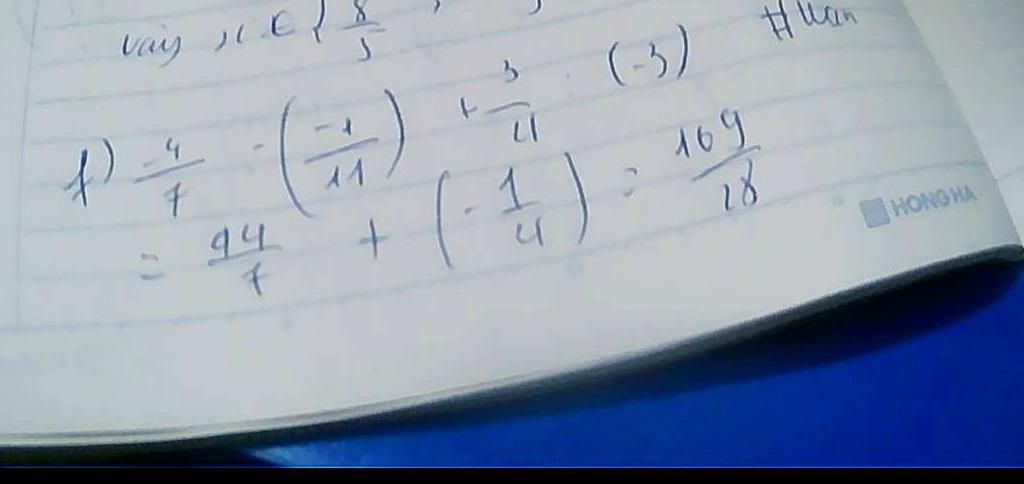 vậy x ∈ { 8/3 ,
f) -4/7 · (-1/11) + 3/4 · (-3)
= 44/7 + (-1/4) = 169/28
HONG HA